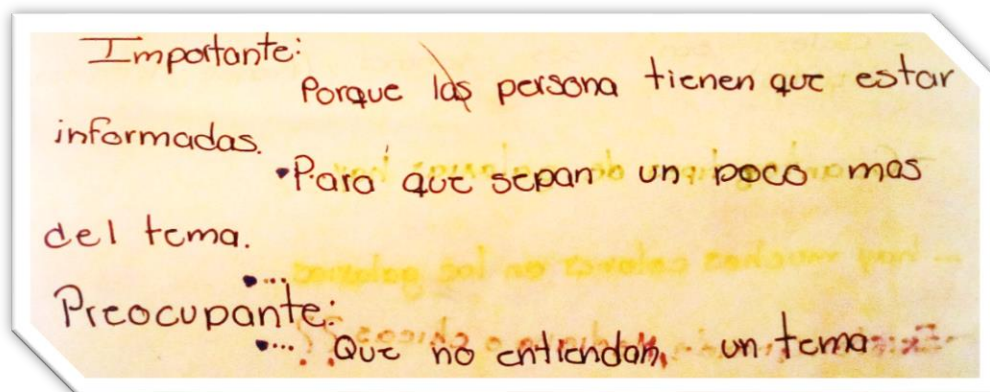 Importante:
Porque las persona tienen que estar
informadas.
•Para que sepan un poco mas
del tema.
•...
Preocupante:
•... Que no entiendan, un tema